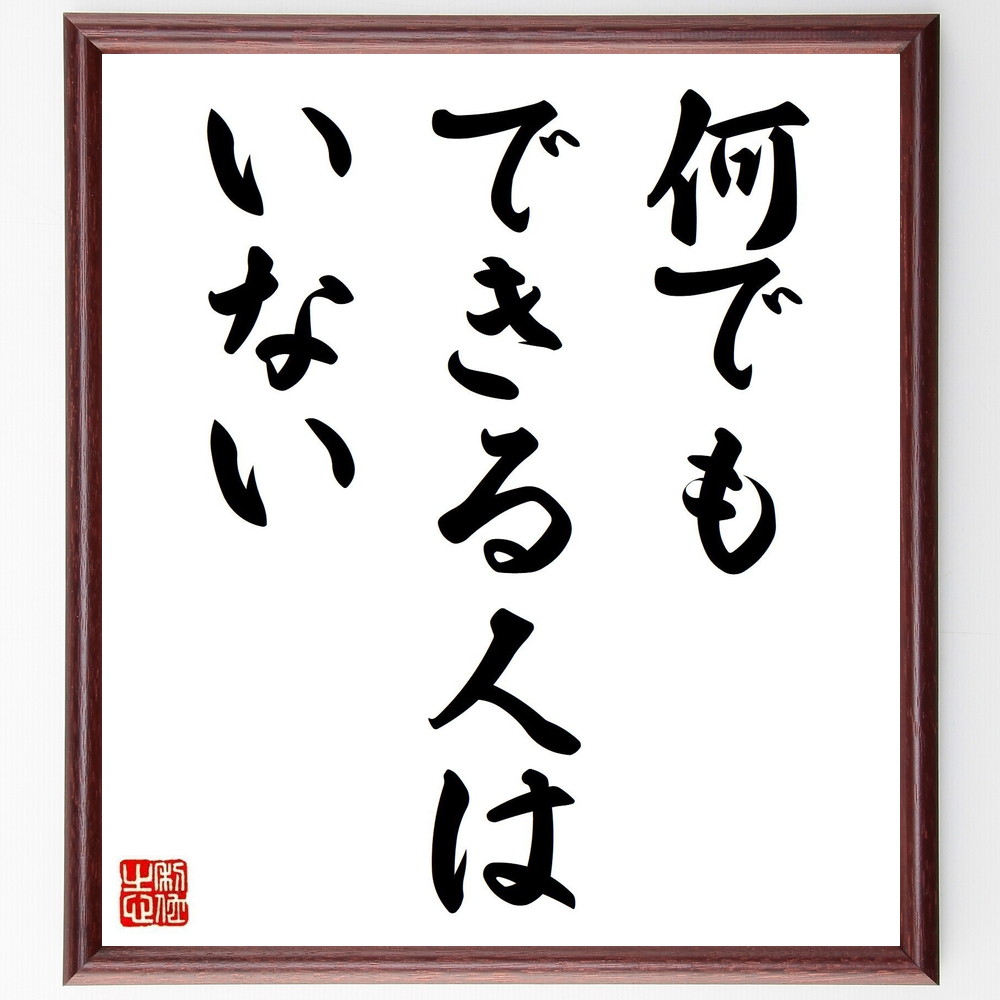 何でも
できる人は
いない